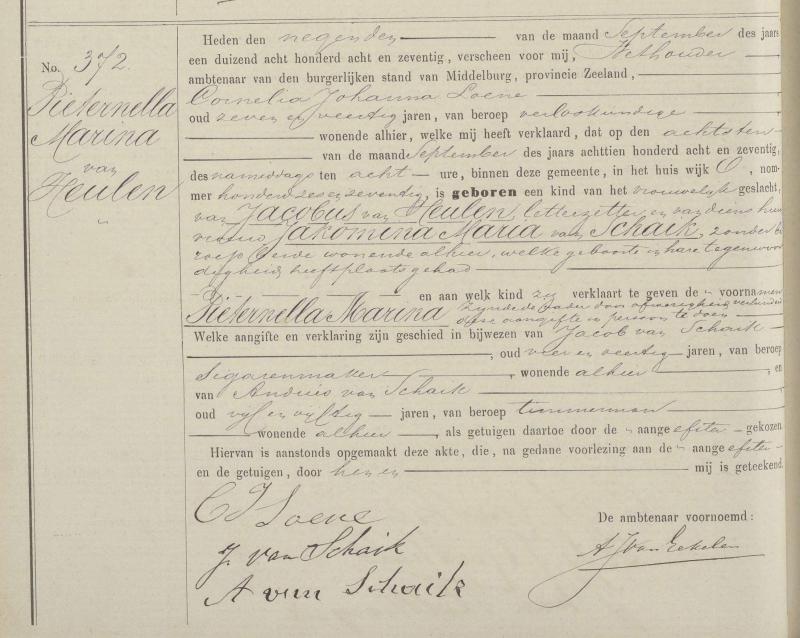 No. 372.
Pieternella
Marina
van
Heulen
Heden den negenden van de maand September des jaars
een duizend acht honderd acht en zeventig, verscheen voor mij, Wethouder
ambtenaar van den burgerlijken stand van Middelburg, provincie Zeeland,
Cornelia Johanna Loene
oud zeven en veertig jaren, van beroep verloskundige
wonende alhier, welke mij heeft verklaard, dat op den achtsten
van de maand September des jaars achttien honderd acht en zeventig,
des namiddags ten acht ure, binnen deze gemeente, in het huis wijk O, nom-
mer honderd zes en zeventig, is geboren een kind van het vrouwelijk geslacht,
van Jacobus van Heulen, letterzetter, en van diens huis
vrouw Jakomina Maria van Schaik, zonder be
roep beide wonende alhier, welke geboorte in hare tegenwoor
digheid heeft plaats gehad
en aan welk kind zij verklaart te geven de voornamen
Pieternella Marina zijnde de vader door afwezigheid verhinderd
deze aangifte in persoon te doen
Welke aangifte en verklaring zijn geschied in bijwezen van Jacob van Schaik
, oud vier en veertig jaren, van beroep
sigarenmaker, wonende alhier, en
van Andries van Schaik
oud vijf en vijftig jaren, van beroep timmerman
wonende alhier, als getuigen daartoe door de aangefster gekozen.
Hiervan is aanstonds opgemaakt deze akte, die, na gedane voorlezing aan de aangefster
en de getuigen, door hen en mij is geteekend.
C J Loene
J. van Schaik
A van Schaik
De ambtenaar voornoemd:
A J van Eekelen